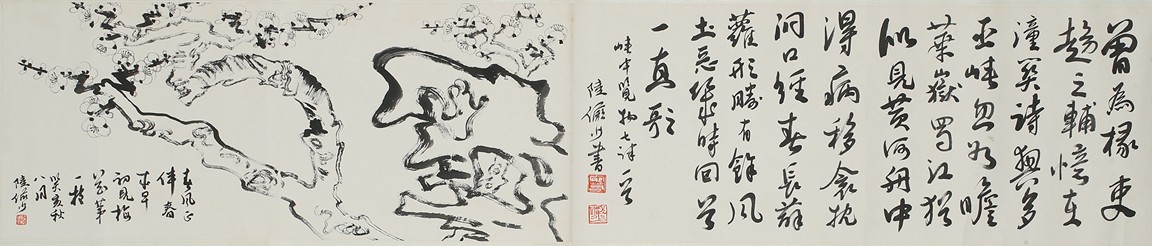 曾為掾吏
趨三輔憶在
潼關詩興多
巫峽忽如瞻
華嶽蜀江猶
似見黃河舟中
得病移衾枕
洞口經春長薜
蘿形勝有餘風
土惡幾時回首
一高歌
峽中覽物七律一首
陸儼少書
春風
伴春
來早
初見梅
花第
一枝
癸亥秋
八月
陸儼少